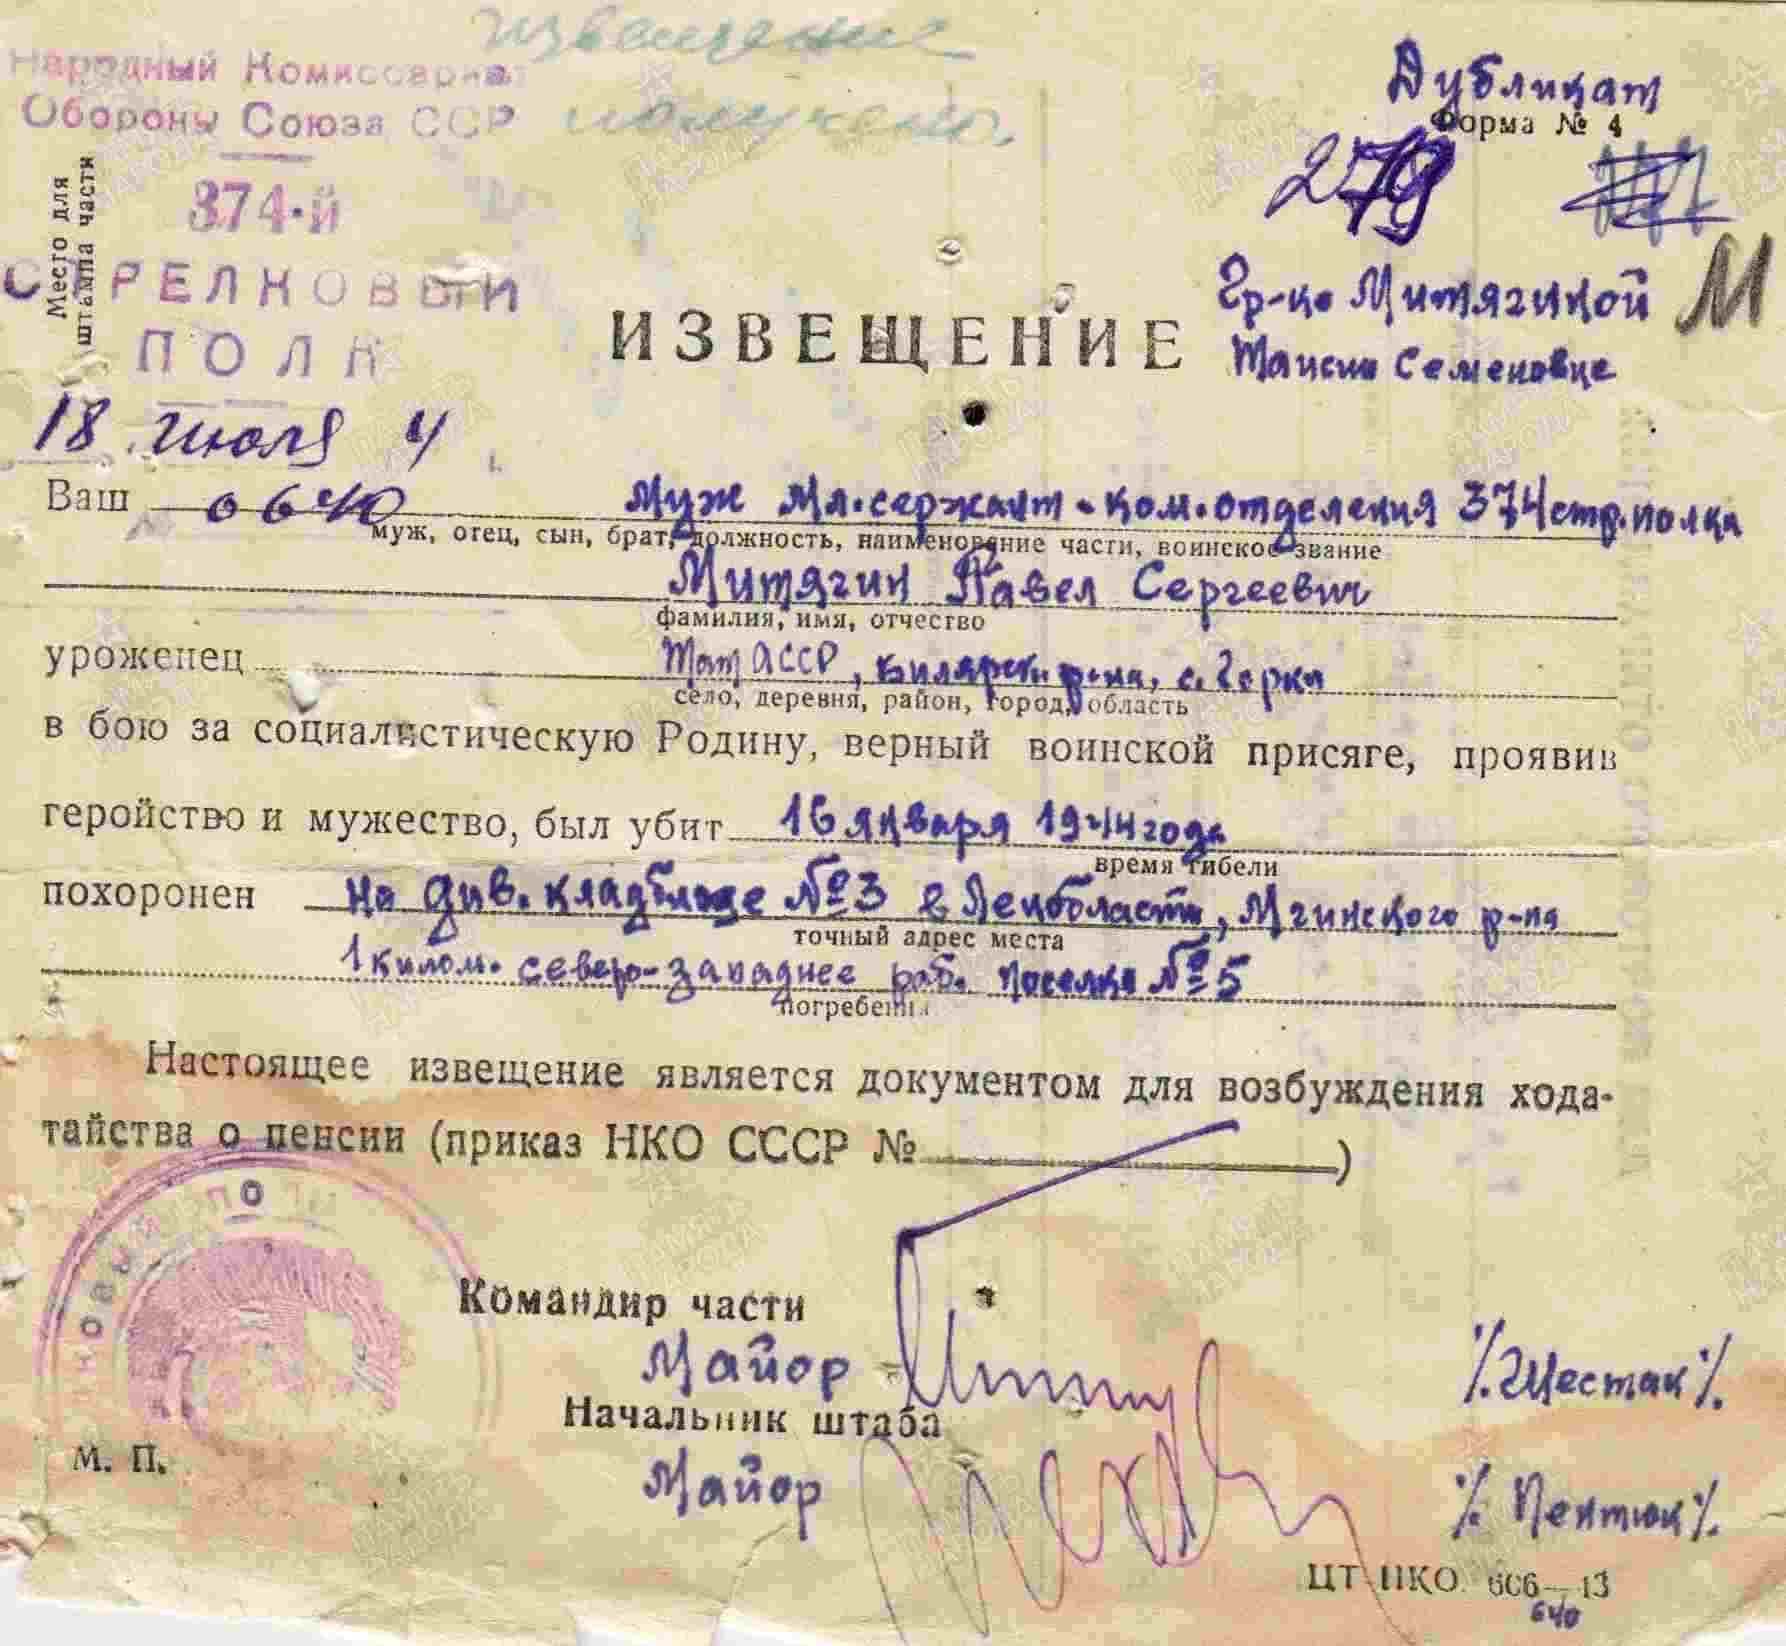 извещение
получено.
Народный Комиссариат
Обороны Союза ССР
Дубликат
Форма № 4
279
Место для
штампа части
374-й
СТРЕЛКОВЫЙ
ПОЛК
Гр-ке Митягиной
М
Таисии Семеновне
ИЗВЕЩЕНИЕ
18 июля 4
0640
Ваш муж мл. сержант - ком. отделения 374 стр. полка
муж, отец, сын, брат, должность, наименование части, воинское звание
Митягин Павел Сергеевич
фамилия, имя, отчество
уроженец Тат АССР, Билярск. р-на, с. Горки
село, деревня, район, город, область
в бою за социалистическую Родину, верный воинской присяге, проявив
геройство и мужество, был убит 16 января 1944 года
время гибели
похоронен на див. кладбище №3 в Ленобласти, Мгинского р-на
точный адрес места
1 килом. северо-западнее раб. поселка №5
погребения
Настоящее извещение является документом для возбуждения хода-
тайства о пенсии (приказ НКО СССР № )
Командир части
Майор /. Шестак /.
Начальник штаба
Майор /. Пентюк /.
М. П.
ЦТ НКО. 606—13
640